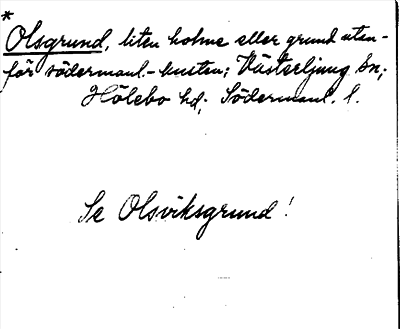 *
Olsgrund, liten holme eller grund utan-
för södermanl.-kusten; Västerljung sn;
Hölebo hd; Södermanl. l.
Se Olsviksgrund!